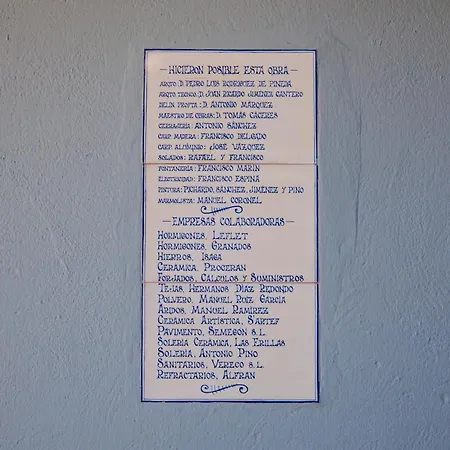 —HICIERON POSIBLE ESTA OBRA—
ARQTO: D. PEDRO LUIS RODRIGUEZ DE PINEDA
ARQTO TECNCO: D. JUAN RICARDO JIMENEZ CANTERO
DELIN. PROYTA: D. ANTONIO MARQUEZ
MAESTRO DE OBRAS: D. TOMÁS CÁCERES
CERRAJERIA: ANTONIO SÁNCHEZ
CARP. MADERA: FRANCISCO DELGADO
CARP. ALUMINIO: JOSÉ VÁZQUEZ
SOLADOS: RAFAEL Y FRANCISCO
FONTANERIA: FRANCISCO MARÍN
ELECTRICIDAD: FRANCISCO ESPINA
PINTURA: PICHARDO, SÁNCHEZ, JIMÉNEZ Y PINO
MARMOLISTA: MANUEL CORONEL
—EMPRESAS COLABORADORAS—
HORMIGONES, LEFLET
HORMIGONES, GRANADOS
HIERROS, ISAGA
CERAMICA, PROCERAN
FORJADOS, CALCULOS Y SUMINISTROS
TEJAS, HERMANOS DÍAZ REDONDO
POLVERO, MANUEL RUIZ GARCÍA
ÁRIDOS, MANUEL RAMIREZ
CERÁMICA ARTÍSTICA, SARTEF
PAVIMENTO, SEMEGON S.L.
SOLERIA CERÁMICA, LAS ERILLAS
SOLERÍA, ANTONIO PINO
SANITARIOS, VERECO S.L.
REFRACTARIOS, ALFRAN